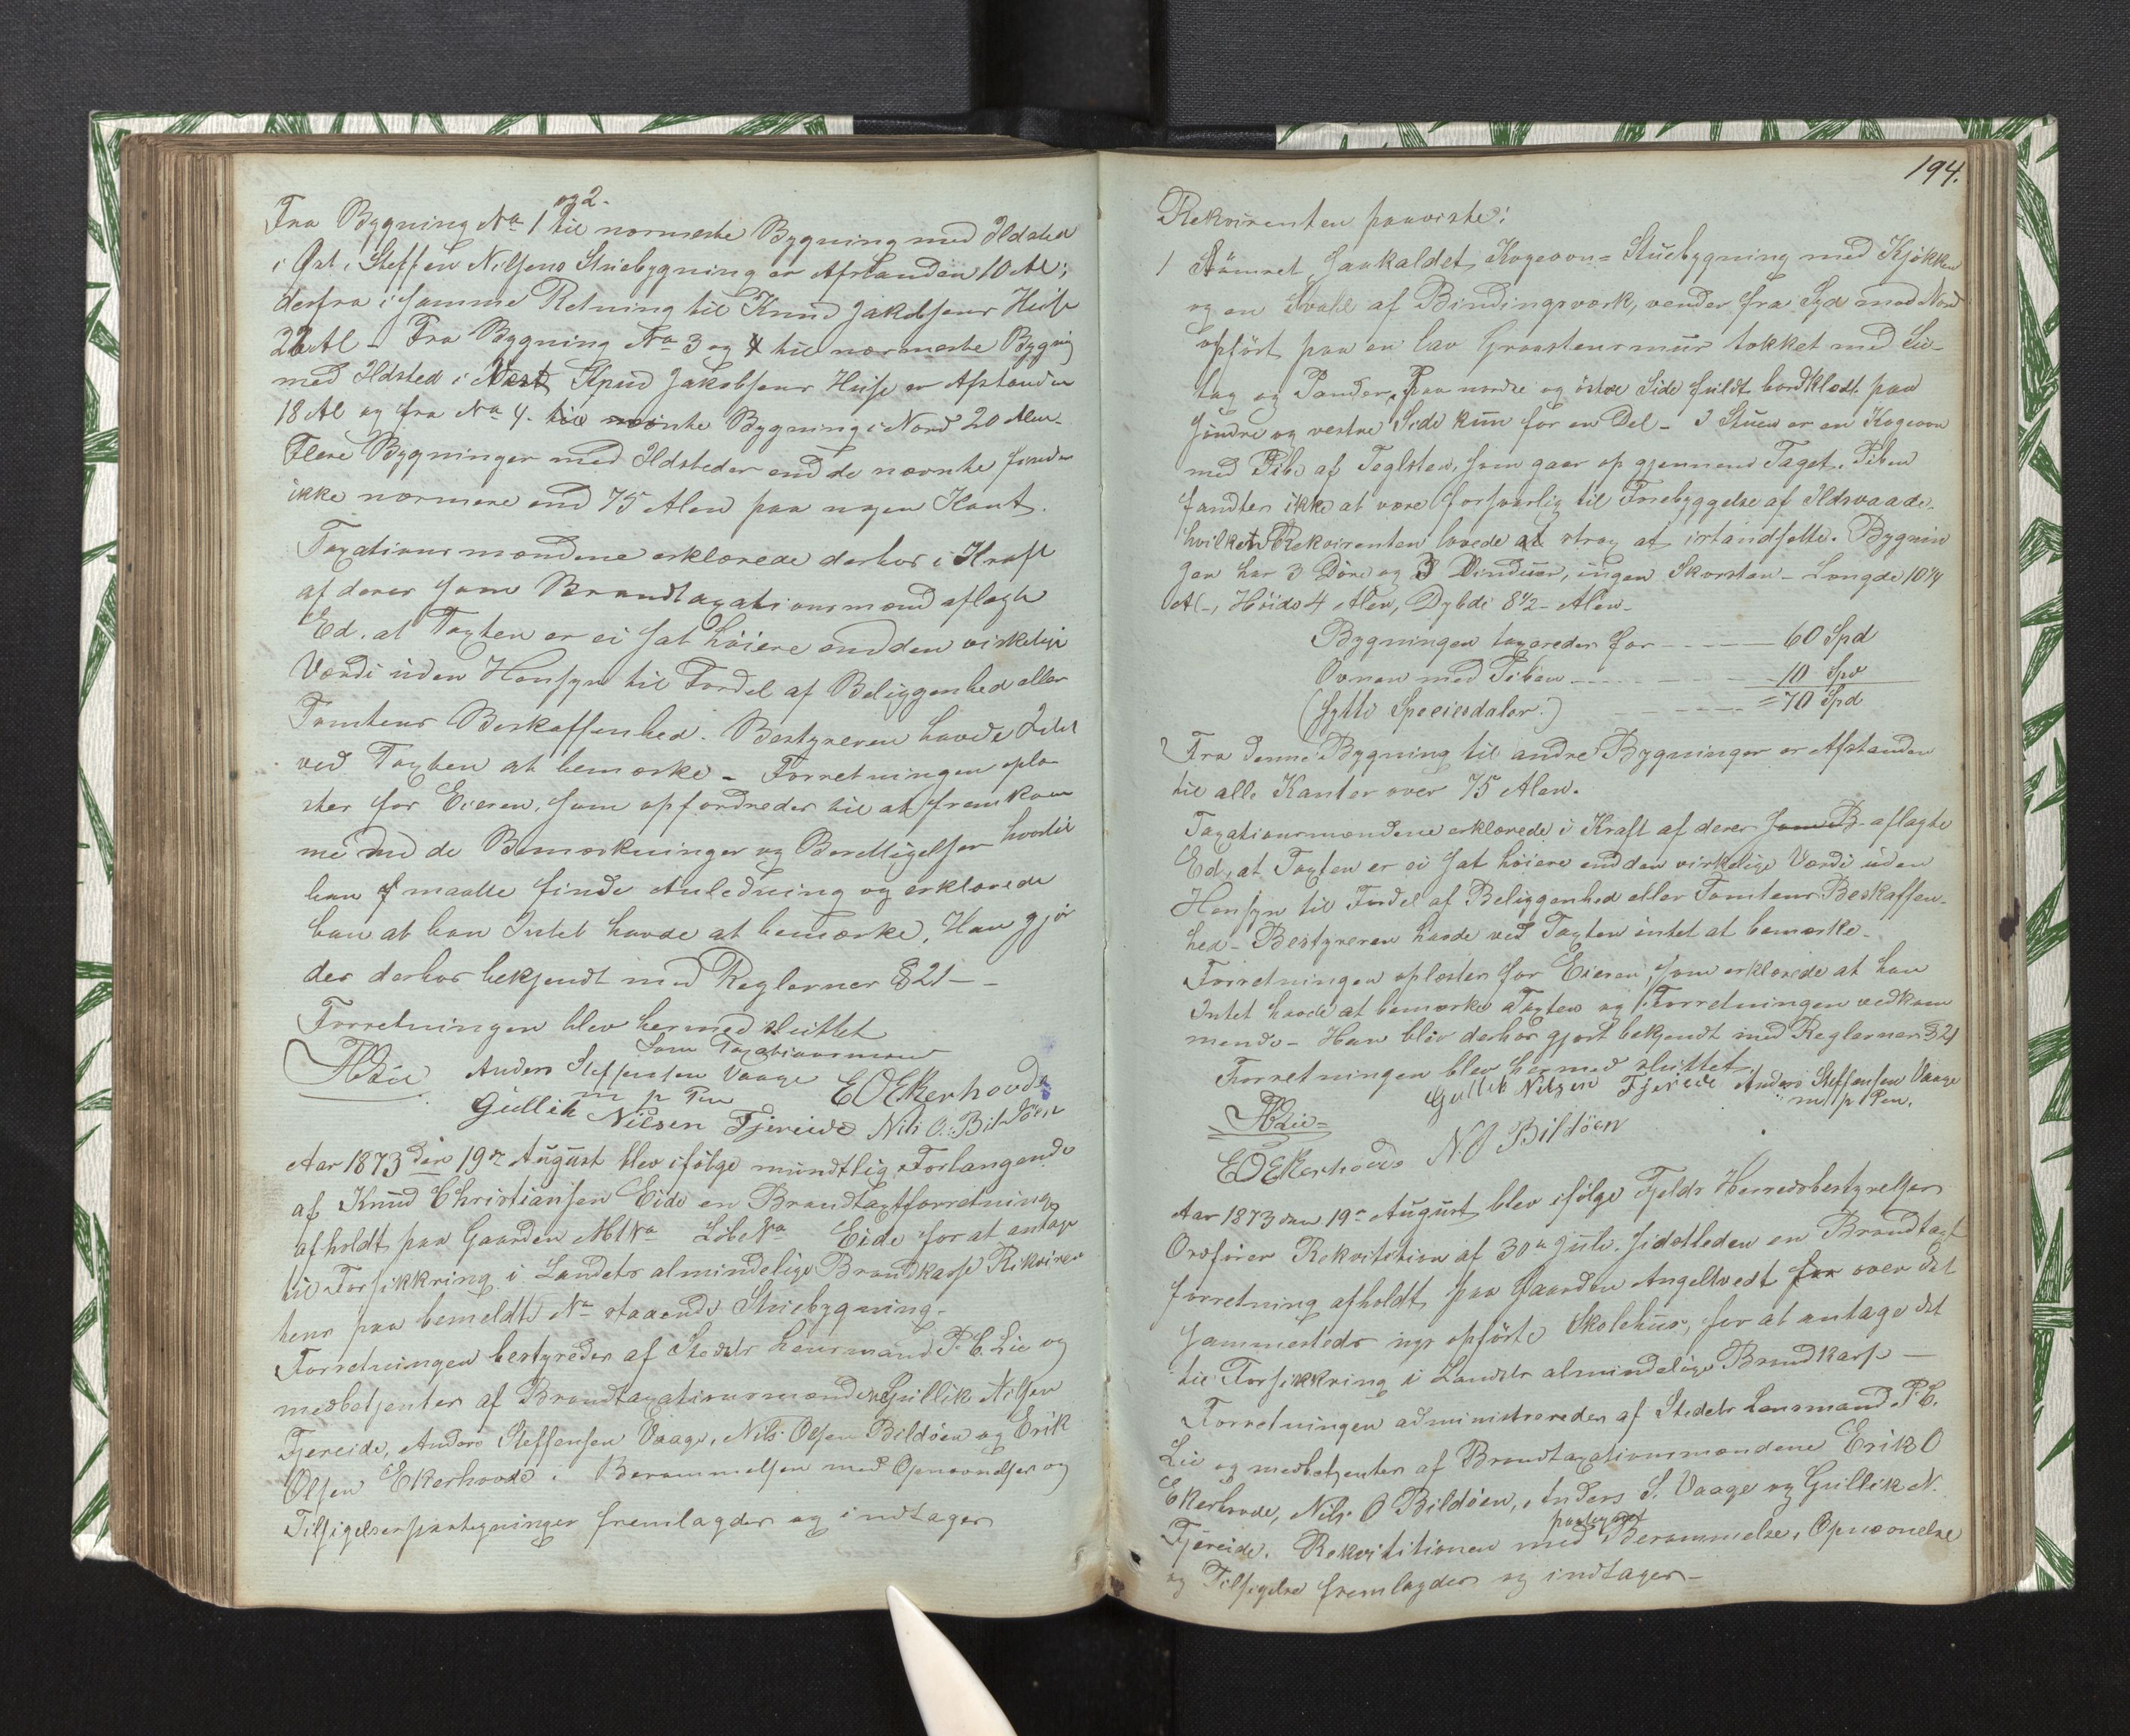 og 2.
Fra Bygning No 1 til nærmeste Bygning med Ildsted
i Øst, Steffen Nilsens Stuebygning er Afstanden 10 Al;
derfra i samme Retning til Knud Jakobsens Huse
22 Al - Fra Bygning No 3 og 4 til nærmeste Bygnig
med Ildsted i Vest Knud Jakobsens Huse er Afstanden
18 Al og fra No 4. til nævnte Bygning i Nord 20 Alen.
Flere Bygninger med Ildsteder end de nævnte findes
ikke nærmere end 75 Alen paa nogen Kant.
Taxationsmændene erklærede derhos i Kraft
af deres som Brandtaxationsmænd aflagte
Ed, at Taxten er ei sat høiere end den virkelige
Værdi uden Hensyn til Fordel af Beliggenhed eller
Tomtens Beskaffenhed. Bestyreren havde Intet
ved Taxten at bemærke - Forretningen oplæ-
stes for Eieren, som opfordredes til at fremkom
me med de Bemærkninger og Berettigelser hvortil
han maatte finde Anledning og erklærede
han at han Intet havde at bemærke. Han gjør
des derhos bekjendt med Reglernes § 21 -
Forretningen blev hermed sluttet
Som Taxationsmænd
PCLie Anders Steffensen Vaage EOEkerhovde
m p Pen
Gullik Nilsen Fjereide Nils O. Bildöen
Aar 1873 den 19de August blev ifølge mundtlig Forlangende
af Knud Christiansen Eide en Brandtaxtforretning
afholdt paa Gaarden Mt No Løbe No Eide for at antage
til Forsikkring i Landets almindelige Brandkasse Rekviren
tens paa bemeldte No staaende Stuebygning.
Forretningen bestyredes af Stedets Lensmand P. C. Lie og
medbetjentes af Brandtaxationsmændene Gullik Nilsen
Fjereide, Anders Steffensen Vaage, Nils Olsen Bildöen og Erik
Olsen Ekerhovde. Berammelsen med Opnævnelser og
Tilsigelsespaategninger fremlagdes og indtages
194.
Rekvirenten paaviste:
1 Tömret saakaldet Kogeovn-Stuebygning med Kjøkken
og en Svahl af Bindingsværk, vender fra Syd mod Nord
opfört paa en lav Graasteensmuur tækket med Su-
tag og Pander. Paa nordre og östre Side fuldt bordklædt paa
söndre og vestre Side kun for en Del - I Stuen er en Kogeovn
med Pibe af Teglsten, som gaar op gjennem Taget. Piben
fandtes ikke at være forsvarlig til Forebyggelse af Ildsvaade.
hvilket Rekvirenten lovede at strax at istandsette. Bygnin
gen har 3 Döre og 3 Vinduer, ingen Skorsten - Længde 10 1/4
Al-, Höide 4 Alen, Dybde 8 1/2 - Alen-
Bygningen taxeredes for - - - 60 Spd
Ovnen med Piben - - - - 10 Spd
(sytti Speciesdaler.) - - - = 70 Spd
Fra denne Bygning til andre Bygninger er Afstanden
til alle Kanter over 75 Alen.
Taxationsmændene erklærede i Kraft af deres som B- aflagte
Ed, at Taxten er ei sat høiere end den virkelige Værdi uden
Hensyn til Fordel af Beliggenhed eller Tomtens Beskaffen-
hed - Bestyreren havde ved Taxten intet at bemærke -
Forretningen oplæstes for Eieren, som erklærede at han
Intet havde at bemærke Taxten og Forretningen vedkom
mende - Han blev derhos gjort bekjendt med Reglernes § 21
Forretningen blev hermed sluttet.
Gullik Nilsen Fjereide Anders Steffensen Vaage
m p Pen.
PCLie
EOEkerhovde N. O Bildöen
Aar 1873 den 19de August blev ifølge Fjelds Herredsbestyrelses
Ordfører Rekvisition af 30te Juli sidstleden en Brandtaxt
forretning afholdt paa Gaarden Angeltvedt for over det
sammesteds nys opførte Skolehus, for at antage det
til Forsikkring i Landets almindelige Brandkasse -
Forretningen administreredes af Stedets Lensmand P. C.
Lie og medbetjentes af Brandtaxationsmændene Erik O
Ekerhovde, Nils O Bildöen, Anders S. Vaage og Gullik N.
Fjereide. Rekvisitionen med paategnet Berammelse, Opnævnelse
og Tilsigelse fremlagdes og indtages -